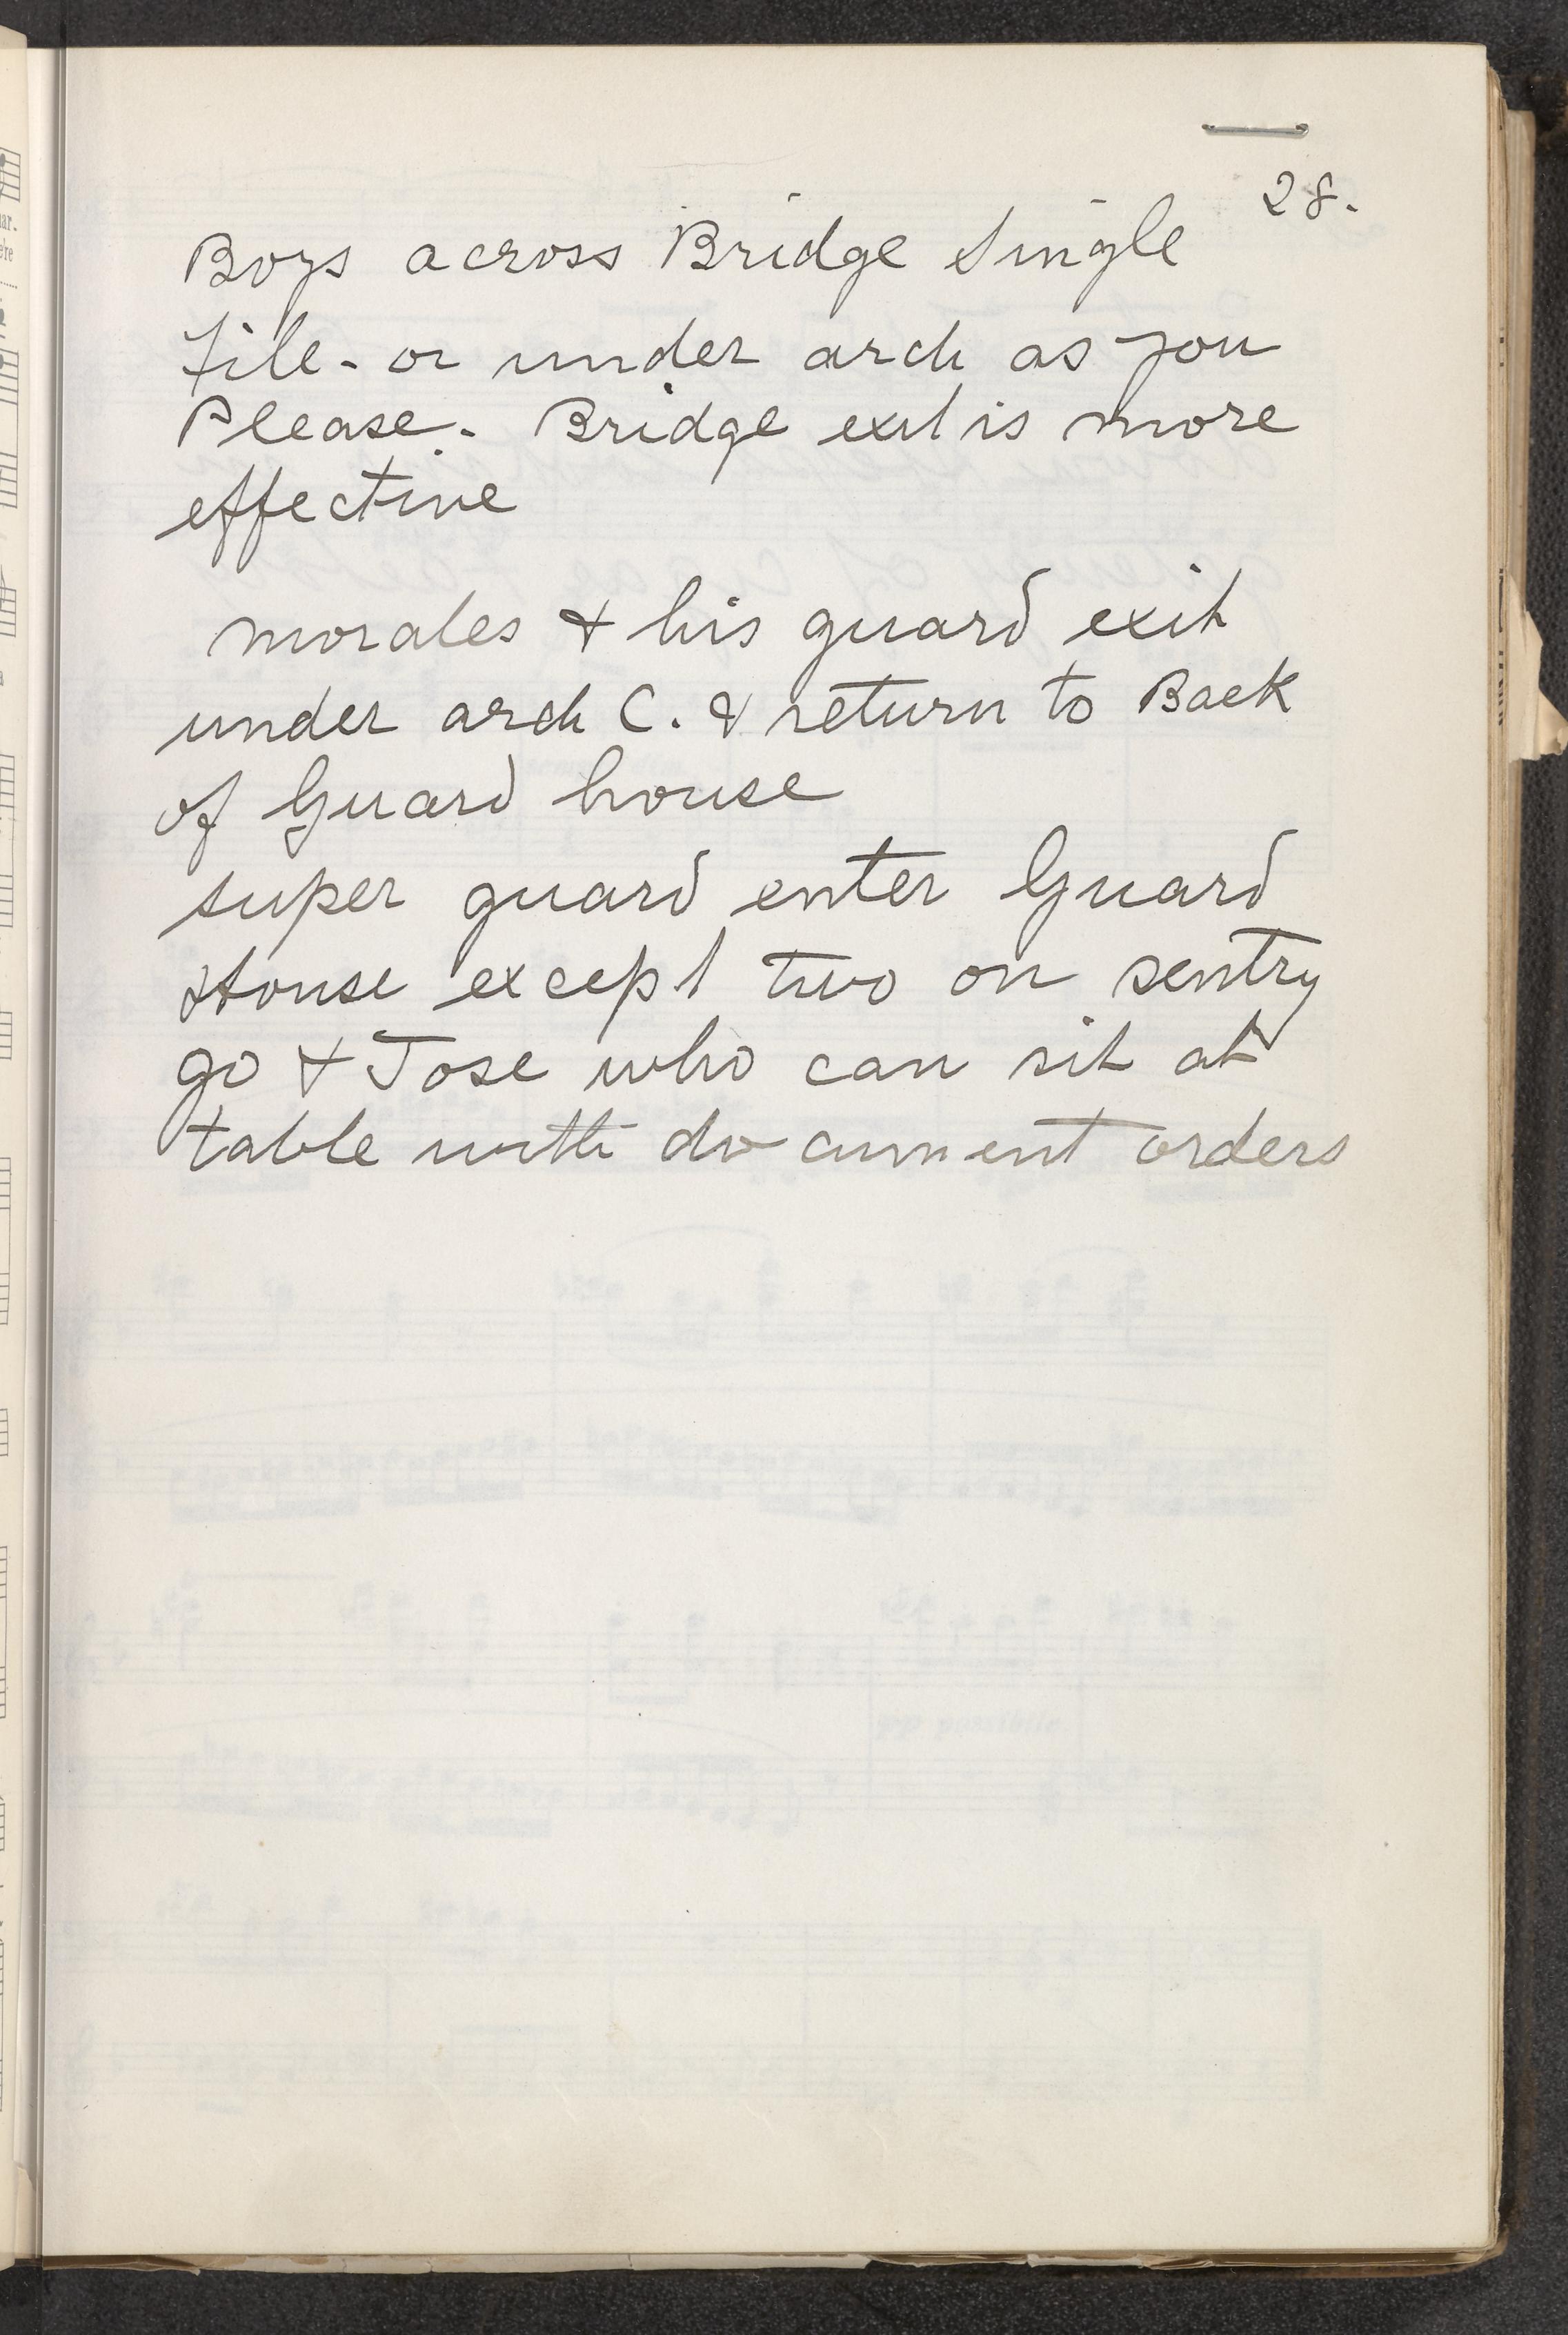 28.
Boys across Bridge Single
file - or under arch as you
Please. Bridge exit is more
effective
Morales & his guard exit
under arch C. & return to Back
of Guard house
super guard enter Guard
House except two on sentry
go & Jose who can sit at
table with document orders